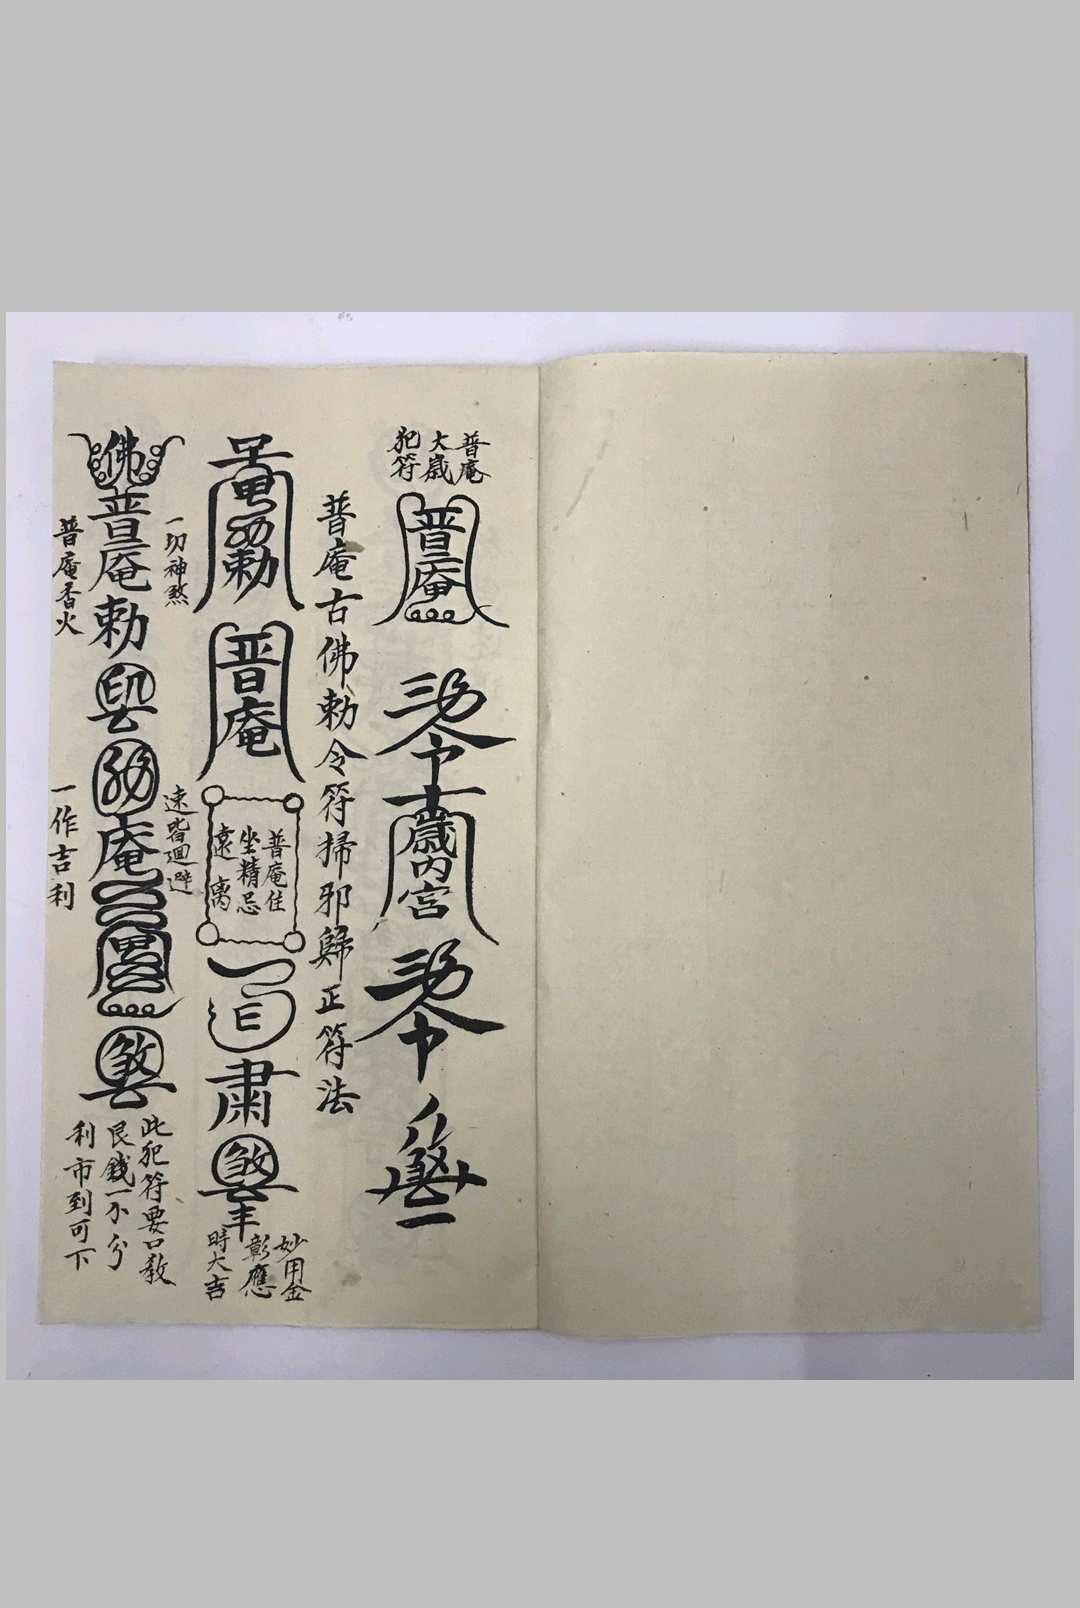 普庵
大歲
犯符
普庵
勅令
歲內宮
勅令
普庵古佛勅令符掃邪歸正符法
勅
普庵
普庵住
坐精忌
遠离
肅
煞
妙用金
彰應
時大吉
一切神煞
速皆迴避
佛普庵勅印
庵
煞
普庵香火
一作吉利
此犯符要口教
艮錢一不分
利市到可下